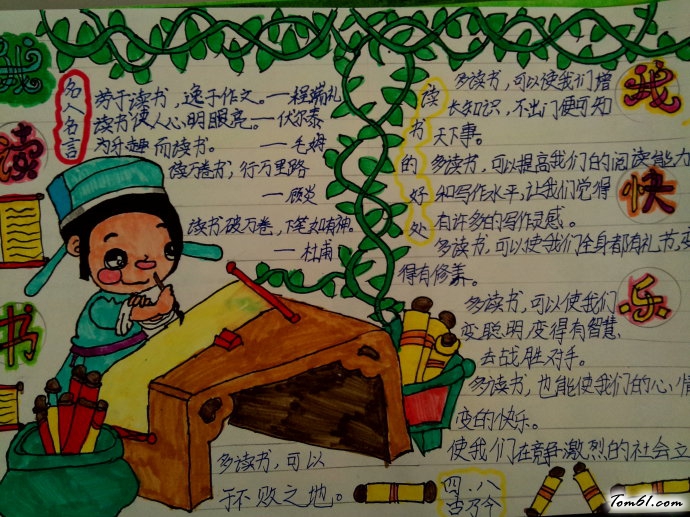 我
读
书
我
快
乐
名人名言
劳于读书，逸于作文。—程端礼
读书使人心明眼亮。—伏尔泰
为乐趣而读书。—毛姆
读万卷书，行万里路
—顾炎
读书破万卷，下笔如有神。
—杜甫
读书的好处
多读书，可以使我们增
长知识，不出门便可知
天下事。
多读书，可以提高我们的阅读能力
和写作水平，让我们觉得
有许多的写作灵感。
多读书，可以使我们全身都有礼节，变
得有修养。
多读书，可以使我们
变聪明，变得有智慧
去战胜对手。
多读书，也能使我们的心情
变的快乐。
使我们在竞争激烈的社会立
多读书，可以
于不败之地。
四.八
Tom61.com